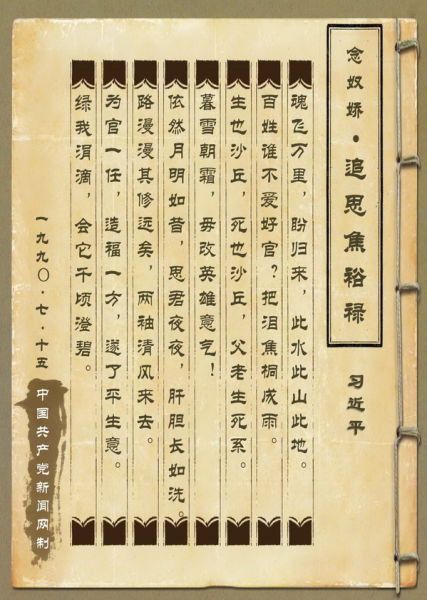 念奴娇·追思焦裕禄
习近平
魂飞万里，盼归来，此水此山此地。
百姓谁不爱好官？把泪焦桐成雨。
生也沙丘，死也沙丘，父老生死系。
暮雪朝霜，毋改英雄意气！
依然月明如昔，思君夜夜，肝胆长如洗。
路漫漫其修远矣，两袖清风来去。
为官一任，造福一方，遂了平生意。
绿我涓滴，会它千顷澄碧。
一九九〇·七·十五
中国共产党新闻网制